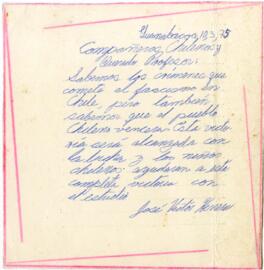 Guanabacoa, 18, 3, 75
Compañeros Chilenos y
Querido Profesor:
Sabemos los crímenes que
comete el fascismo en
Chile, pero también
sabemos que el pueblo
Chileno vencerá. Esta victo
ria será alcanzada con
la lucha y los niños
chilenos ayudaran a esta
completa victoria con
el estudio
José Victor